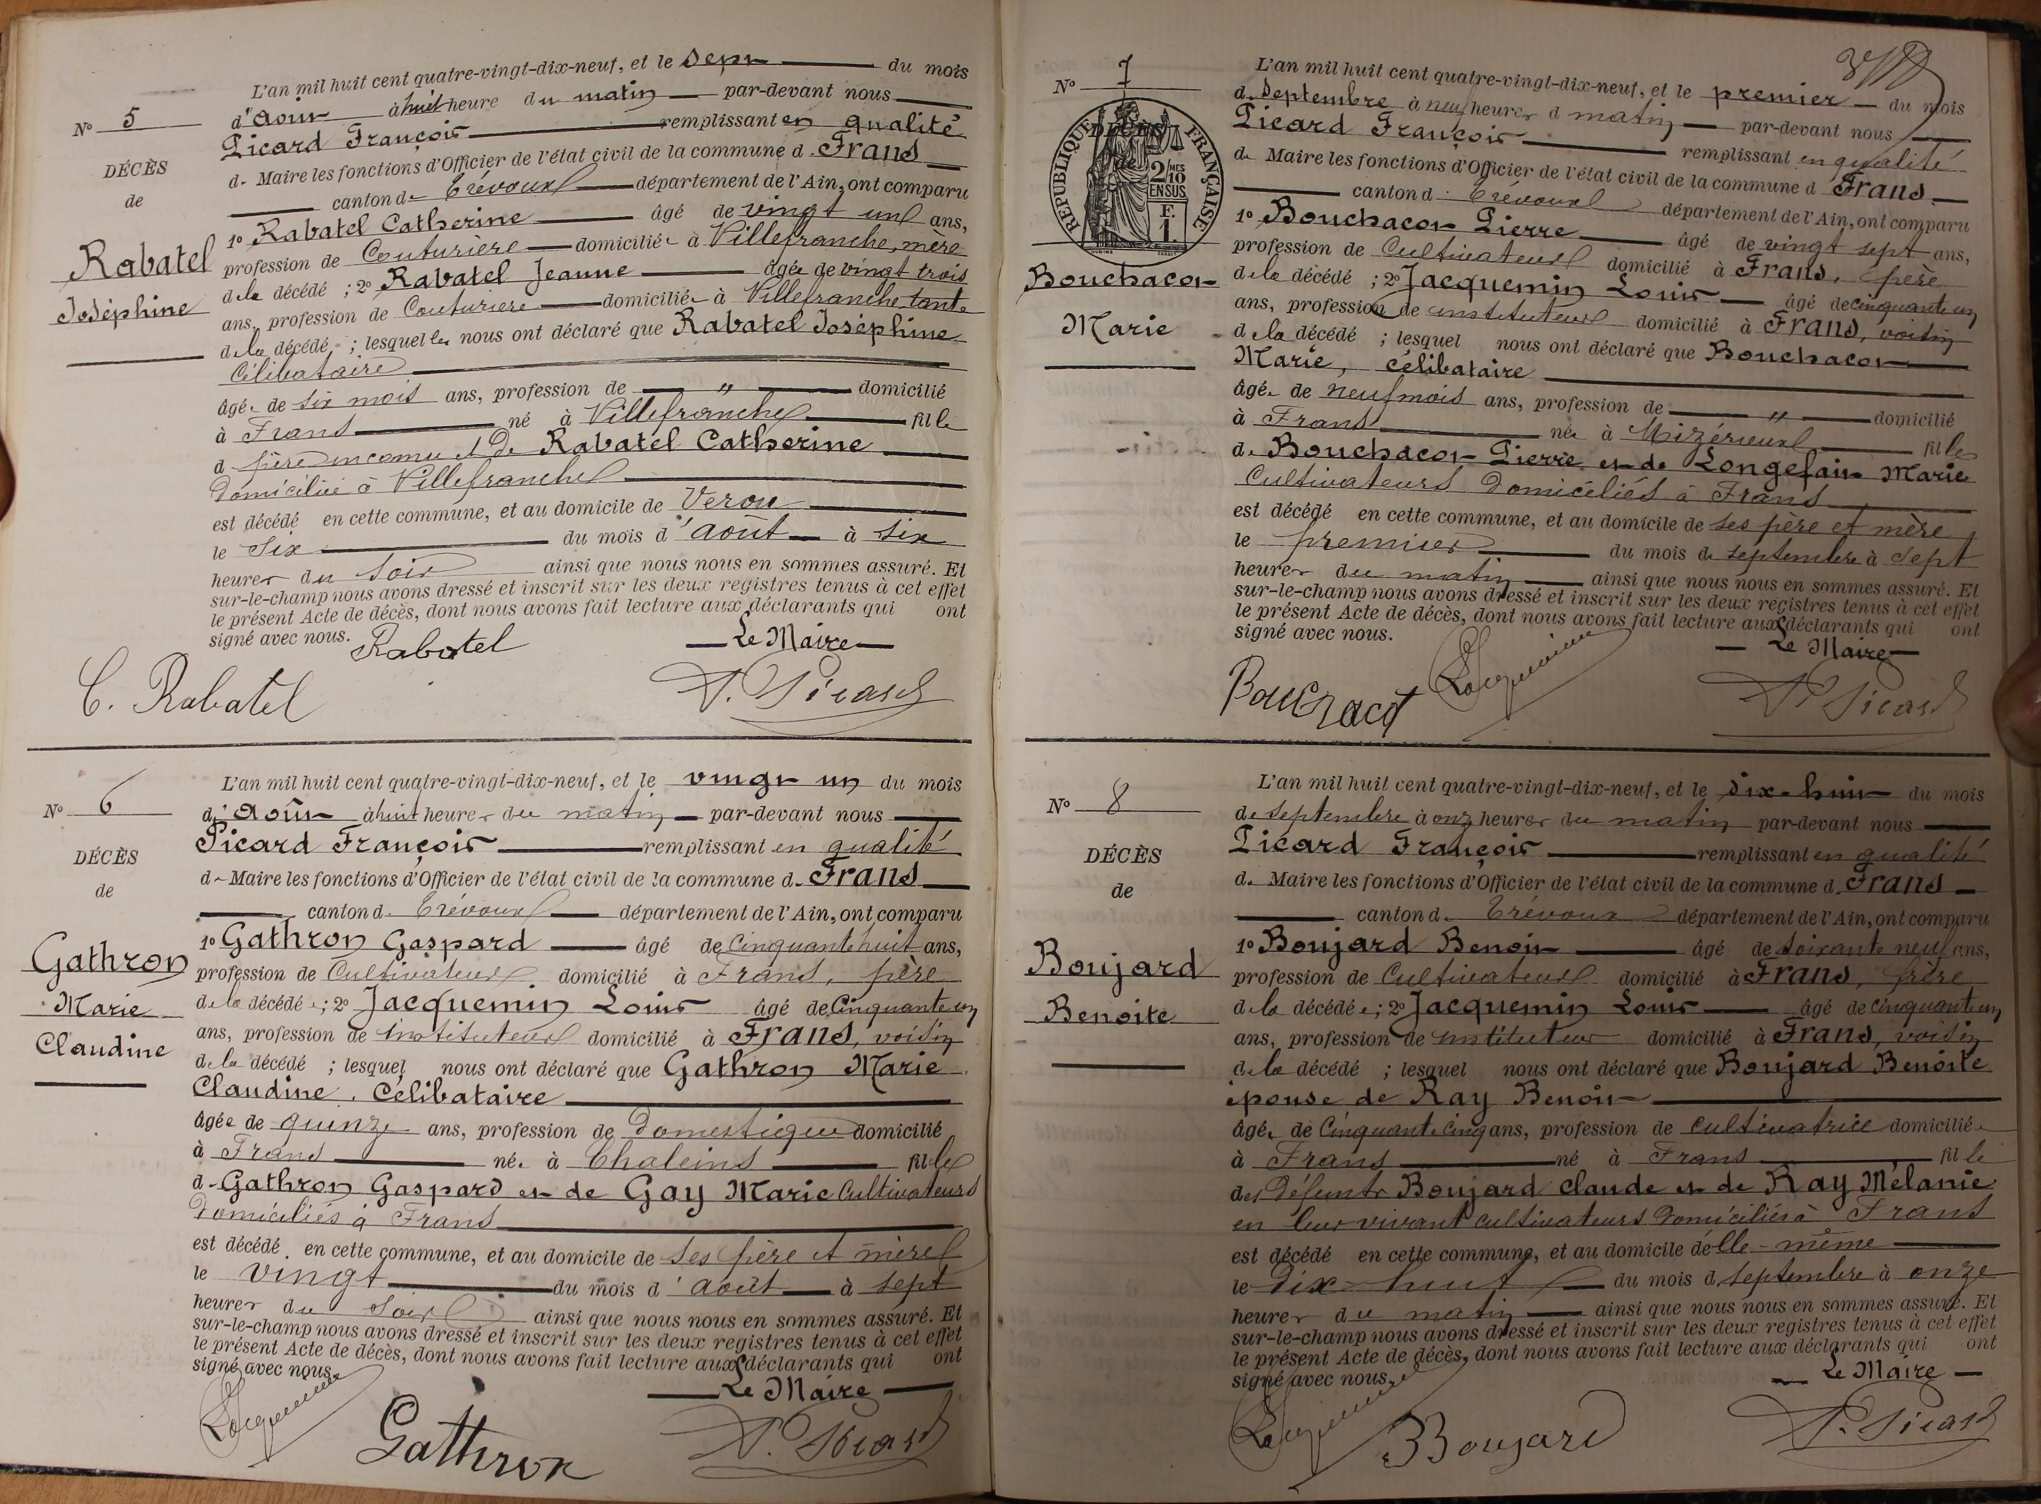 N° 5
DÉCÈS
de
Rabatel
Joséphine
L'an mil huit cent quatre-vingt-dix-neuf, et le sept du mois
d'Août à huit heure du matin par-devant nous
Picard François remplissant en qualité
de Maire les fonctions d'Officier de l'état civil de la commune d. Frans
canton de Trévoux département de l'Ain, ont comparu
1° Rabatel Catherine âgé de vingt un ans,
profession de Couturière domiciliée à Villefranche, mère
de la décédé ; 2° Rabatel Jeanne âgée de vingt trois
ans, profession de Couturière domiciliée à Villefranche, tante
de la décédé ; lesquelles nous ont déclaré que Rabatel Joséphine
Célibataire
âgée de six mois ans, profession de " domicilié
à Frans né à Villefranche fille
d père inconnu et de Rabatel Catherine
Domiciliée à Villefranche
est décédé en cette commune, et au domicile de
le Six du mois d'août à six
heures du soir ainsi que nous nous en sommes assuré. Et
sur-le-champ nous avons dressé et inscrit sur les deux registres tenus à cet effet
le présent Acte de décès, dont nous avons fait lecture aux déclarants qui ont
signé avec nous.
Le Maire
Rabatel
C. Rabatel
Picard
N° 6
DÉCÈS
de
Gathron
Marie
Claudine
L'an mil huit cent quatre-vingt-dix-neuf, et le vingt un du mois
d'Août à huit heures du matin par-devant nous
Picard François remplissant en qualité
de Maire les fonctions d'Officier de l'état civil de la commune d. Frans
canton d. Trévoux département de l'Ain, ont comparu
1° Gathron Gaspard âgé de Cinquante huit ans,
profession de Cultivateur domicilié à Frans, père
de la décédée ; 2° Jacquemin Louis âgé de Cinquante un
ans, profession de instituteur domicilié à Frans, voisin
de la décédé ; lesquel nous ont déclaré que Gathron Marie
Claudine, Célibataire
âgée de quinze ans, profession de Domestique domicilié
à Frans née à Chaleins fille
de Gathron Gaspard et de Gay Marie Cultivateurs
Domiciliés à Frans
est décédé en cette commune, et au domicile de ses père et mère
le vingt du mois d'août à sept
heures du soir ainsi que nous nous en sommes assuré. Et
sur-le-champ nous avons dressé et inscrit sur les deux registres tenus à cet effet
le présent Acte de décès, dont nous avons fait lecture aux déclarants qui ont
signé avec nous.
Le Maire
Jacquemin
Gathron
Picard
N° 7
RÉPUBLIQUE FRANÇAISE
2/10 MES
EN SUS
F.
1
Bouchacot
Marie
L'an mil huit cent quatre-vingt-dix-neuf, et le premier du mois
de Septembre à neuf heures d matin par-devant nous
Picard François remplissant en qualité
de Maire les fonctions d'Officier de l'état civil de la commune d Frans
canton d. Trévoux département de l'Ain, ont comparu
1° Bouchacot Pierre âgé de vingt sept ans,
profession de Cultivateur domicilié à Frans, père
de la décédé ; 2° Jacquemin Louis âgé de cinquante un
ans, profession de instituteur domicilié à Frans, voisin
de la décédé ; lesquel nous ont déclaré que Bouchacot
Marie, célibataire
âgée de neuf mois ans, profession de " domicilié
à Frans née à Mizérieux fille
de Bouchacot Pierre et de Longefait Marie
Cultivateurs Domiciliés à Frans
est décédé en cette commune, et au domicile de ses père et mère
le premier du mois de septembre à sept
heures du matin ainsi que nous nous en sommes assuré. Et
sur-le-champ nous avons dressé et inscrit sur les deux registres tenus à cet effet
le présent Acte de décès, dont nous avons fait lecture aux déclarants qui ont
signé avec nous.
Le Maire
Bouchacot
Jacquemin
Picard
N° 8
DÉCÈS
de
Boujard
Benoite
L'an mil huit cent quatre-vingt-dix-neuf, et le dix-huit du mois
de septembre à onze heures du matin par-devant nous
Picard François remplissant en qualité
de Maire les fonctions d'Officier de l'état civil de la commune d. Frans
canton d. Trévoux département de l'Ain, ont comparu
1° Boujard Benoit âgé de soixante neuf ans,
profession de Cultivateur domicilié à Frans, frère
de la décédée ; 2° Jacquemin Louis âgé de cinquante un
ans, profession de instituteur domicilié à Frans, voisin
de la décédé ; lesquel nous ont déclaré que Boujard Benoite
épouse de Ray Benoit
âgée de Cinquante cinq ans, profession de cultivatrice domiciliée
à Frans né à Frans fille
des Défunts Boujard Claude et de Ray Mélanie
en leur vivant cultivateurs domiciliés à Frans
est décédé en cette commune, et au domicile d'elle-même
le Dix huit du mois d septembre à onze
heures du matin ainsi que nous nous en sommes assuré. Et
sur-le-champ nous avons dressé et inscrit sur les deux registres tenus à cet effet
le présent Acte de décès, dont nous avons fait lecture aux déclarants qui ont
signé avec nous.
Le Maire
Jacquemin
Boujard
Picard